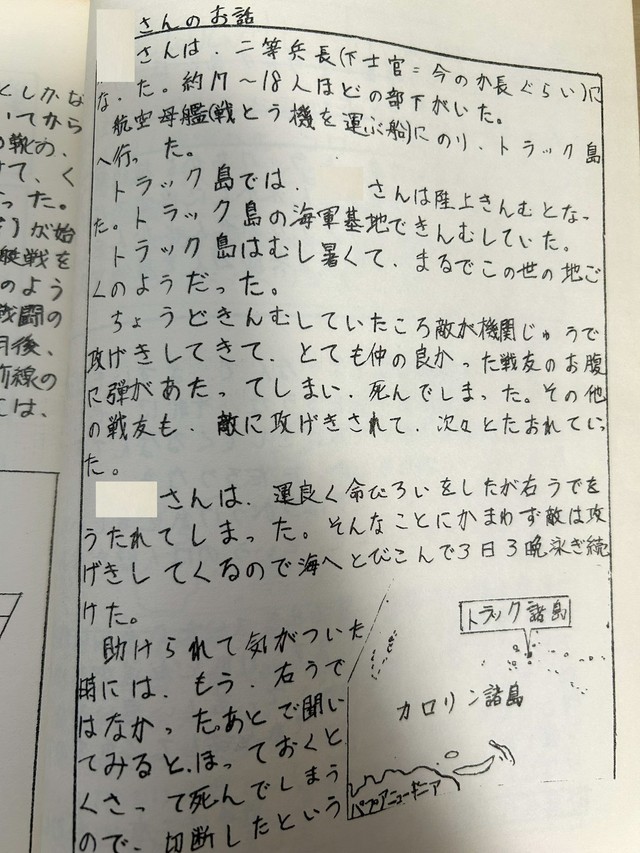 さんのお話
さんは、二等兵長(下士官=今のか長ぐらい)に
な、た。約17〜18人ほどの部下がいた。
航空母艦(戦とう機を運ぶ船)にのり、トラック島
へ行った。
トラック島では、さんは陸上きんむとなっ
た。トラック島の海軍基地できんむしていた。
トラック島はむし暑くて、まるでこの世の地ご
くのようだった。
ちょうどきんむしていたころ敵が機関じゅうで
攻げきしてきて、とても仲の良かった戦友のお腹
に弾があたってしまい、死んでしまった。その他
の戦友も、敵に攻げきされて、次々とたおれていっ
た。
さんは、運良く命びろいをしたが右うでを
うたれてしまった。そんなことにかまわず敵は攻
げきしてくるので海へとびこんで3日3晩泳ぎ続
けた。
助けられて気がついた
時には、もう、右うで
はなかった。あとで聞い
てみると、ほっておくと
くさって死んでしまう
ので、切断したという
トラック諸島
カロリン諸島
パプアニューギニア
としかな
いてから
の靴の、
けて、く
った。
が始
艇戦を
のよう
戦闘の
月後、
前線の
には、